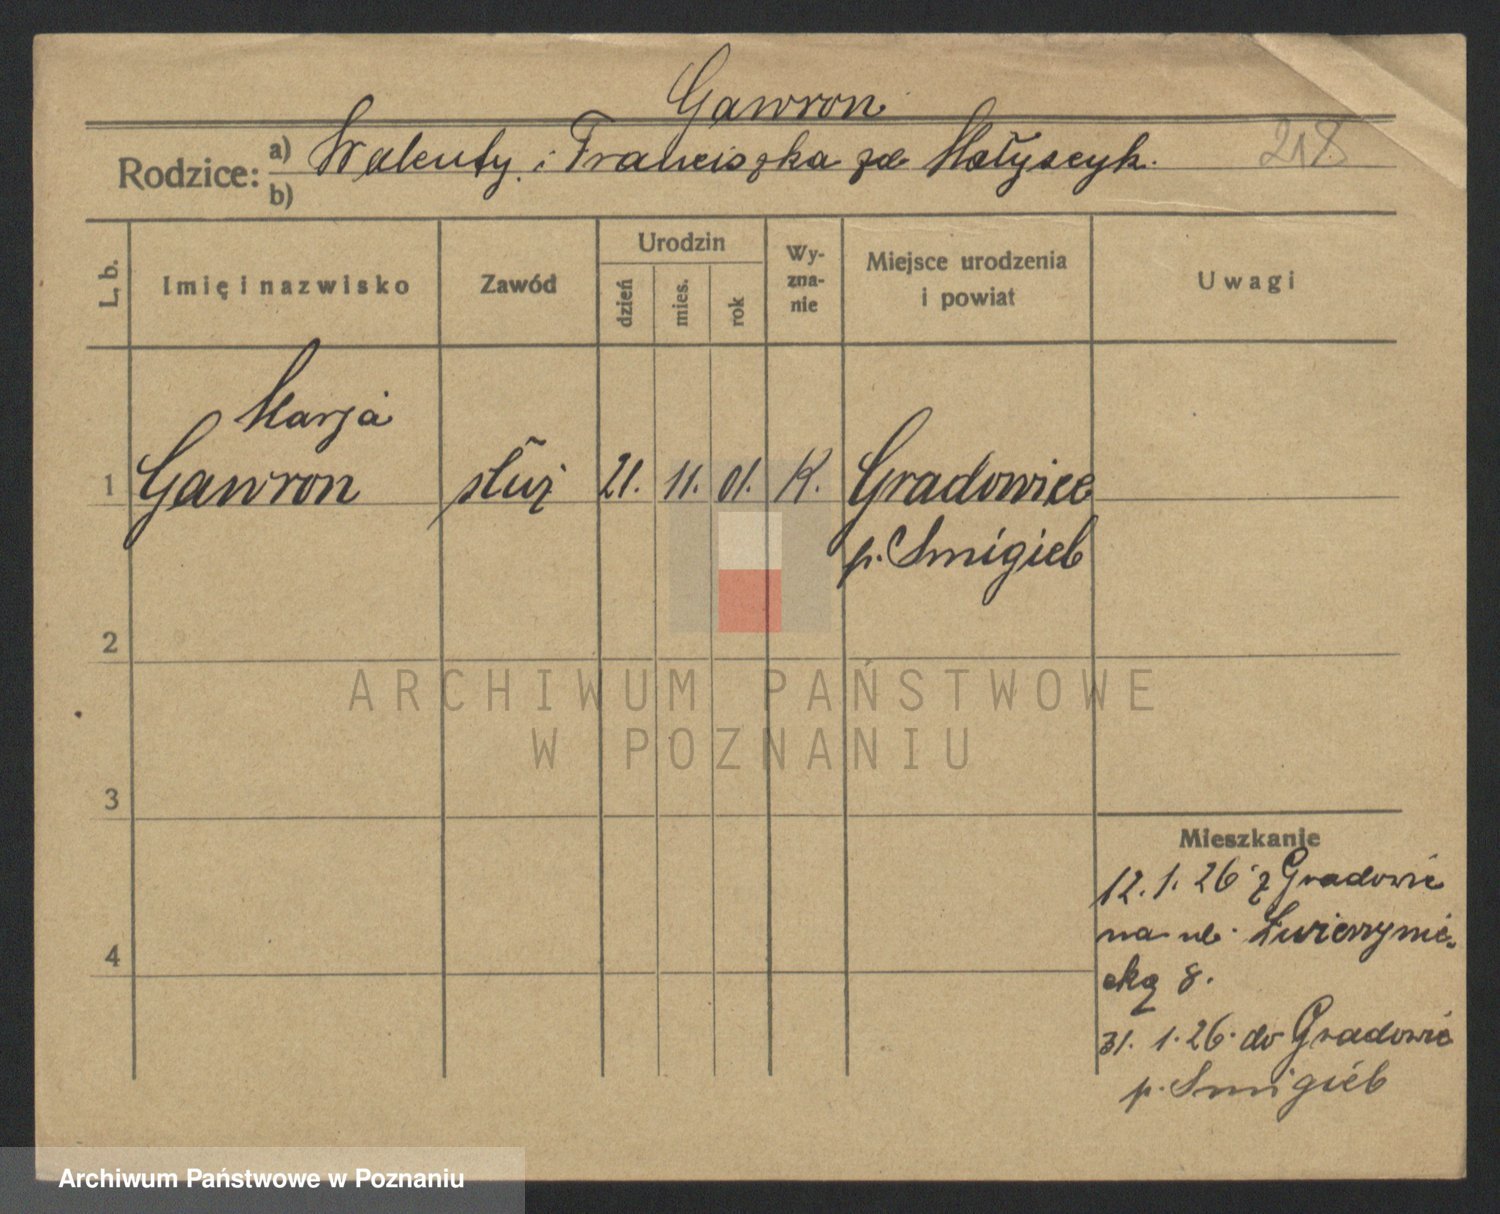 Gawron
Rodzice: a) Walenty i Franciszka zd Matyszcyk. 218
b)
L. b. Imię i nazwisko Zawód Urodzin dzień mies. rok Wy-zna-nie Miejsce urodzenia i powiat Uwagi
Marja
1 Gawron służ 21. 11. 01. K. Gradowice
p. Smigiel
2
3
4
Mieszkanie
12. 1. 26 z Gradowic
na ul. Zwierzynie-
cką 8.
31. 1. 26. do Gradowic
p. Smigiel
ARCHIWUM PAŃSTWOWE
W POZNANIU
Archiwum Państwowe w Poznaniu